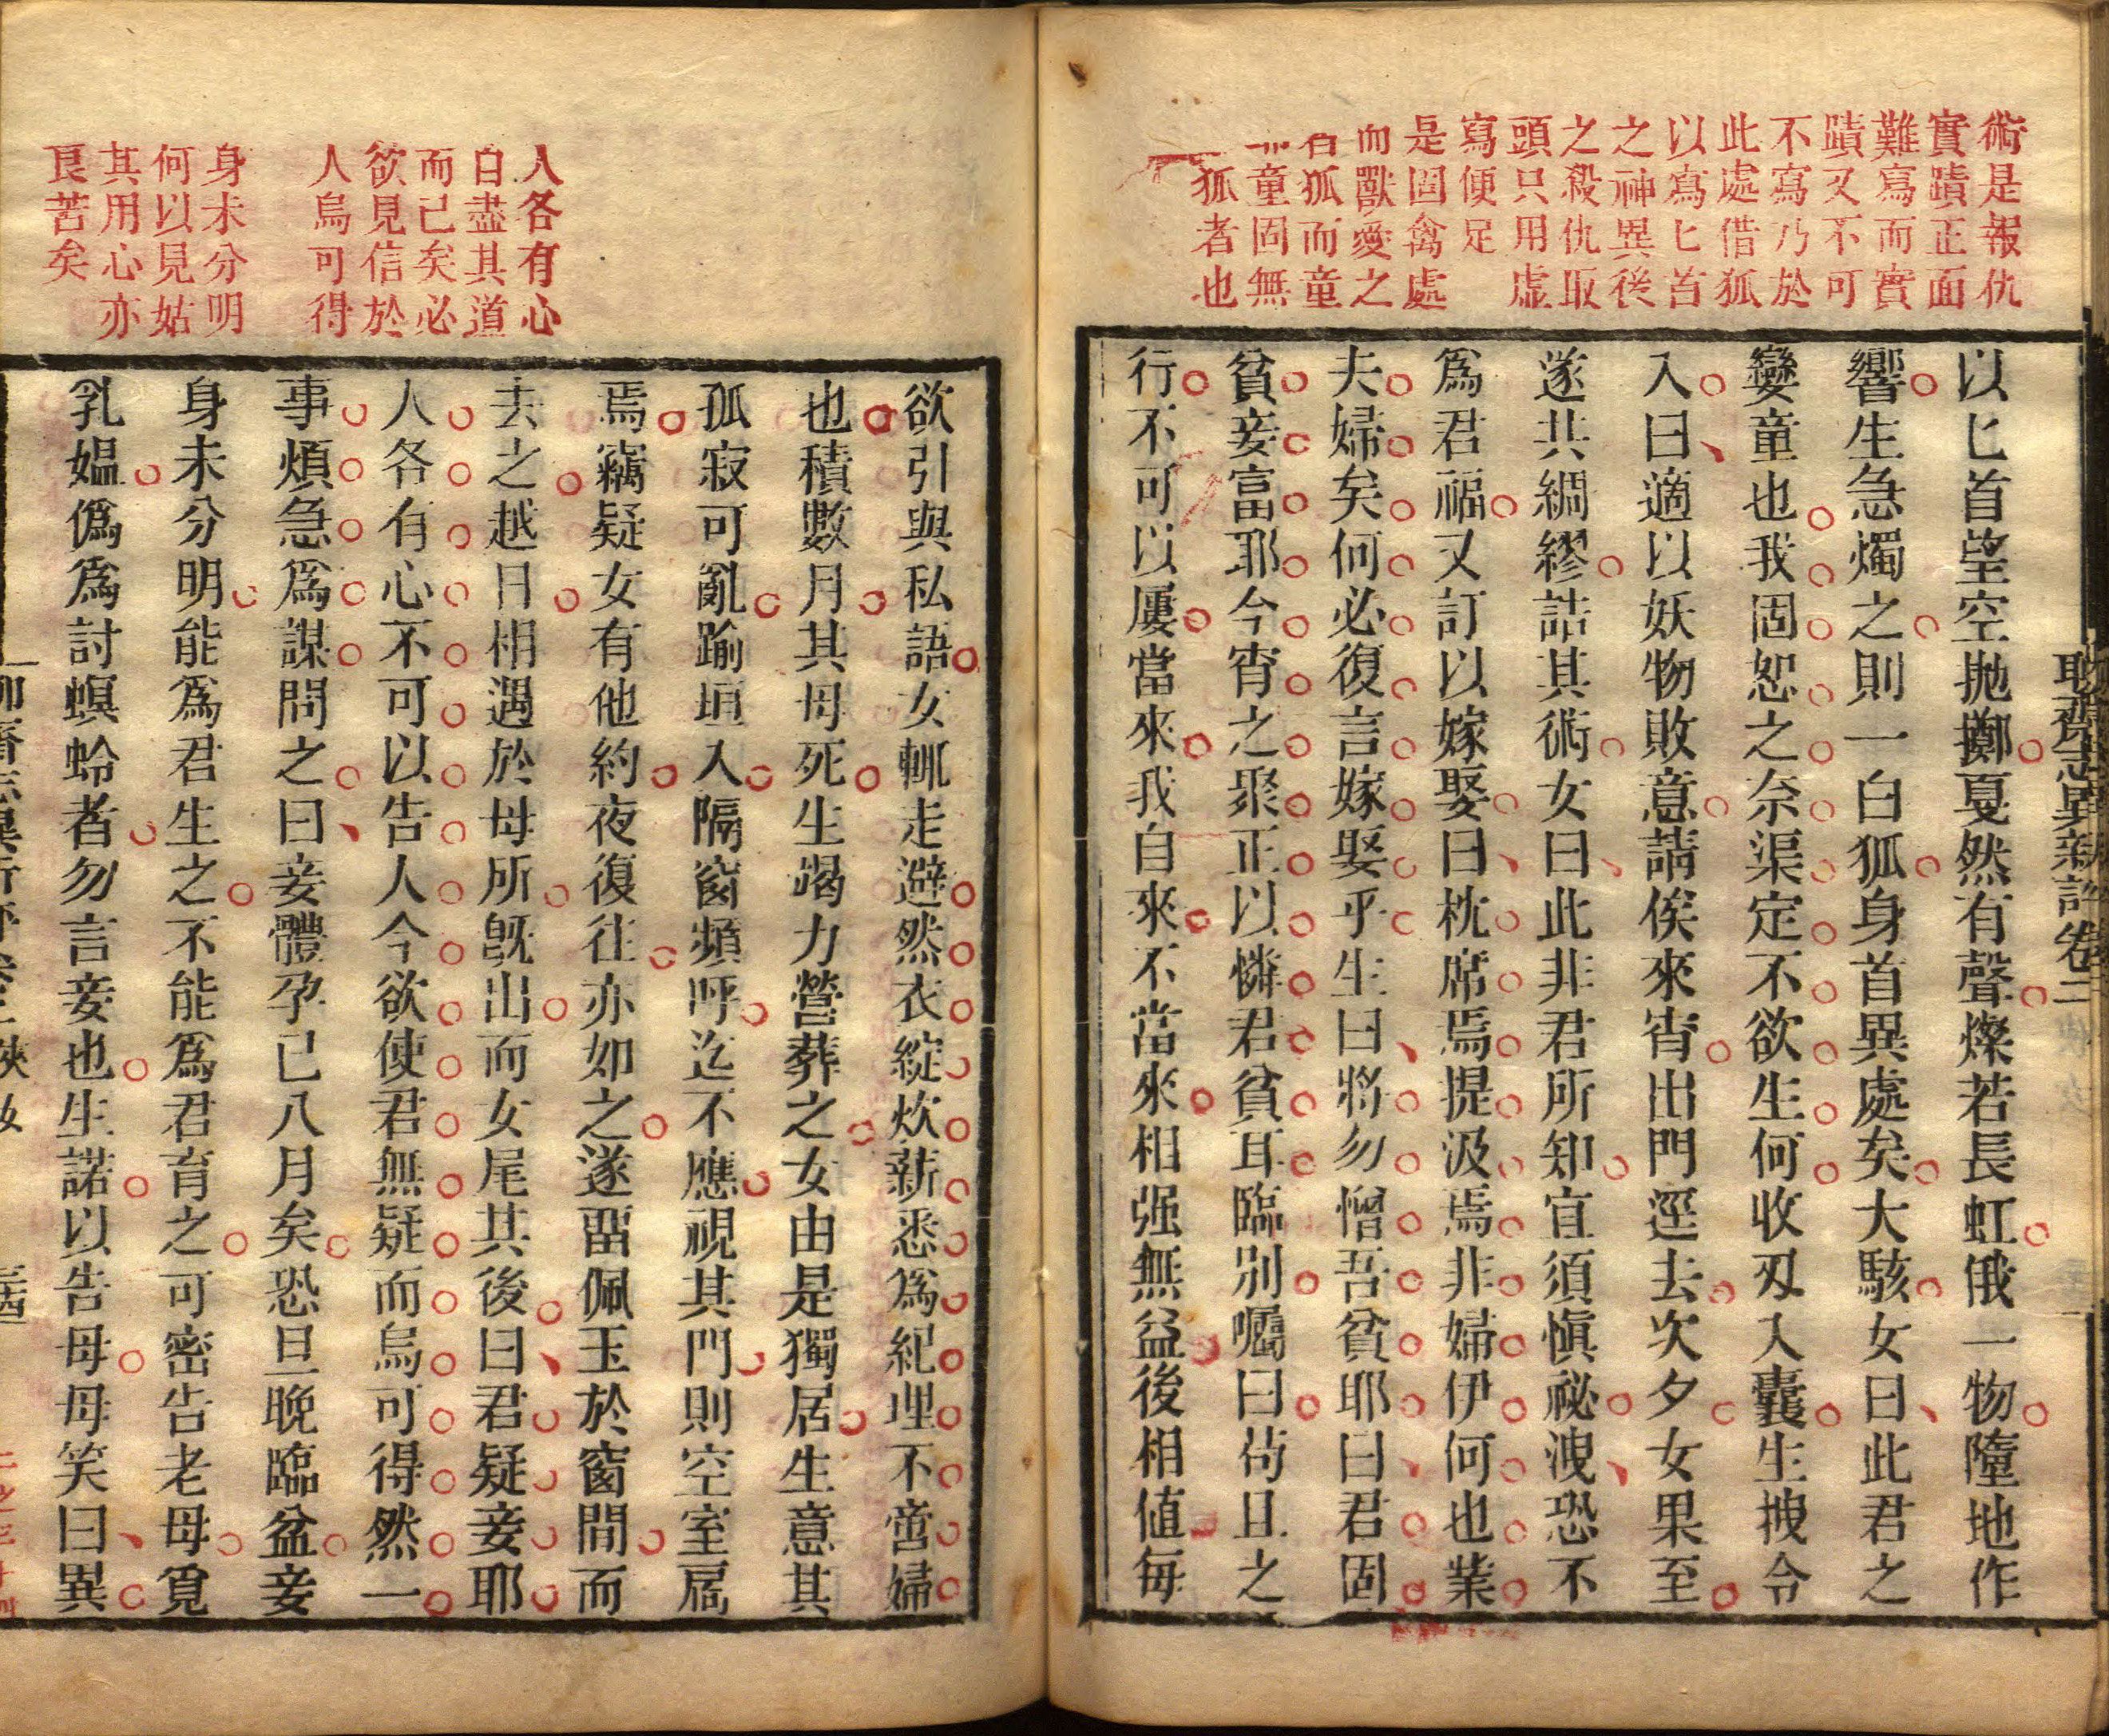 術是報仇
實蹟正面
難寫而實
蹟又不可
不寫乃於
此處借狐
以寫匕首
之神異後
之殺仇取
頭只用虛
寫便足
是固禽處
而獸愛之
者狐而童
童固無
狐者也
聊齋志異新評卷二
以匕首望空抛擲戛然有聲燦若長虹俄一物墮地作
響生急燭之則一白狐身首異處矣大駭女曰此君之
孌童也我固恕之奈渠定不欲生何收刃入囊生拽令
入曰適以妖物敗意請俟來宵出門逕去次夕女果至
遂共綢繆詰其術女曰此非君所知宜須愼祕洩恐不
爲君福又訂以嫁娶曰枕席焉提汲焉非婦伊何也業
夫婦矣何必復言嫁娶乎生曰將勿憎吾貧耶曰君固
貧妾富耶今宵之聚正以憐君貧耳臨别囑曰苟且之
行不可以屢當來我自來不當來相强無益後相値每
人各有心
白盡其道
而已矣必
欲見信於
人烏可得
身未分明
何以見姑
其用心亦
良苦矣
欲引與私語女輒走避然衣綻炊薪悉爲紀理不啻婦
也積數月其母死生竭力營葬之女由是獨居生意其
孤寂可亂踰垣入隔窗頻呼迄不應視其門則空室扃
焉竊疑女有他約夜復往亦如之遂畱佩玉於窗間而
去之越日相遇於母所旣出而女尾其後曰君疑妾耶
人各有心不可以告人今欲使君無疑而烏可得然一
事煩急爲謀問之曰妾體孕已八月矣恐旦晚臨盆妾
身未分明能爲君生之不能爲君育之可密告老母覓
乳媼僞爲討螟蛉者勿言妾也生諾以告母母笑曰異